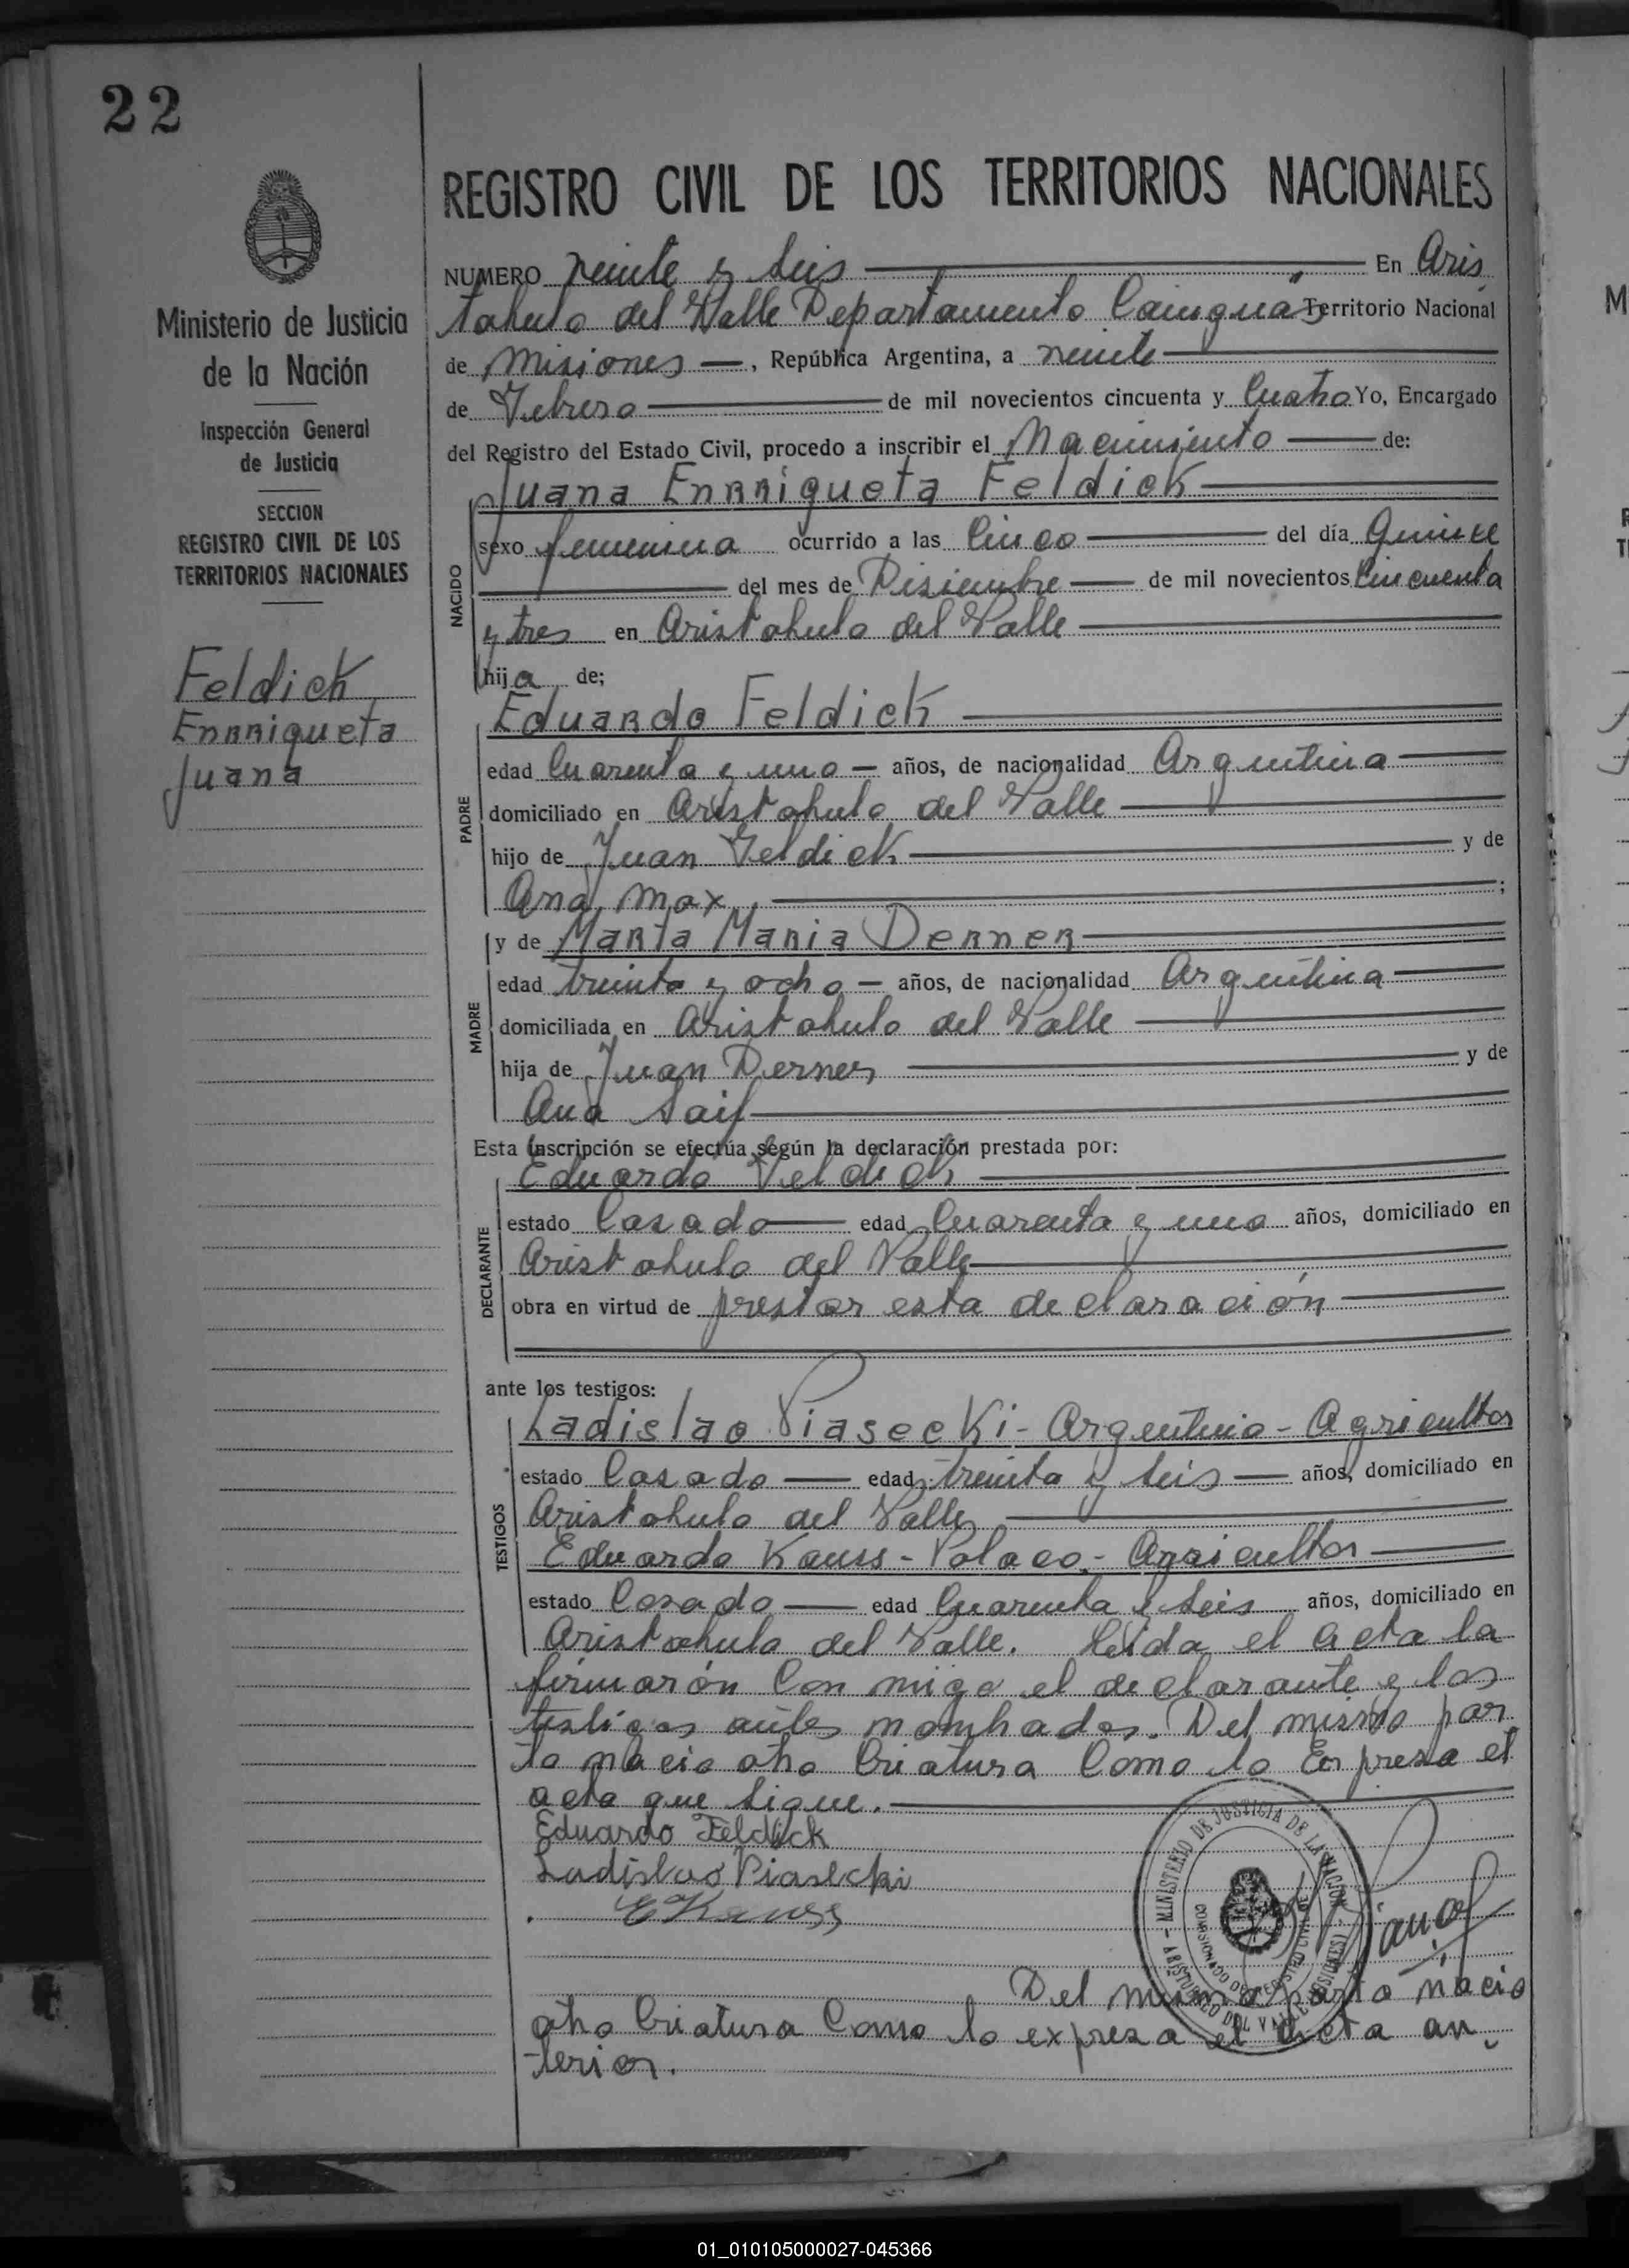 22
REGISTRO CIVIL DE LOS TERRITORIOS NACIONALES
Ministerio de Justicia
de la Nación
Inspección General
de Justicia
SECCION
REGISTRO CIVIL DE LOS
TERRITORIOS NACIONALES
Feldick
Enrriqueta
Juana
NUMERO veinte y seis En Aris
tobulo del Valle Departamento Cainguás Territorio Nacional
de Misiones, República Argentina, a veinte
de Febrero de mil novecientos cincuenta y Cuatro Yo, Encargado
del Registro del Estado Civil, procedo a inscribir el Nacimiento de:
Juana Enrriqueta Feldick
NACIDO
sexo femenina ocurrido a las Cinco del día Quinse
del mes de Disiembre de mil novecientos Cincuenta
y tres en Aristobulo del Valle
hija de;
PADRE
Eduardo Feldick
edad Cuarenta y uno años, de nacionalidad Argentina
domiciliado en Aristobulo del Valle
hijo de Juan Feldick y de
Ana Max ;
MADRE
y de Marta Maria Derner
edad treinta y ocho años, de nacionalidad Argentina
domiciliada en Aristobulo del Valle
hija de Juan Derner y de
Ana Saif
Esta inscripción se efectúa según la declaración prestada por:
DECLARANTE
Eduardo Feldick
estado Casado edad Cuarenta y uno años, domiciliado en
Aristobulo del Valle
obra en virtud de prestar esta declaración
ante los testigos:
TESTIGOS
Ladislao Piasecki - Argentino - Agricultor
estado Casado edad treinta y seis años, domiciliado en
Aristobulo del Valle
Eduardo Kauss - Polaco - Agricultor
estado Casado edad Cuarenta y seis años, domiciliado en
Aristobulo del Valle. Leida el acta la
firmarón Con migo el declarante y los
testigos antes nombrados. Del mismo par
to nacio otra Criatura Como lo Expresa el
acta que sigue.
Eduardo Feldick
Ladislao Piasecki
E Kauss
MINISTERIO DE JUSTICIA DE LA NACION
ARISTOBULO DEL VALLE (MISIONES)
Del mismo parto nacio
otra Criatura Como lo expresa el acta an
terior.
01_010105000027-045366